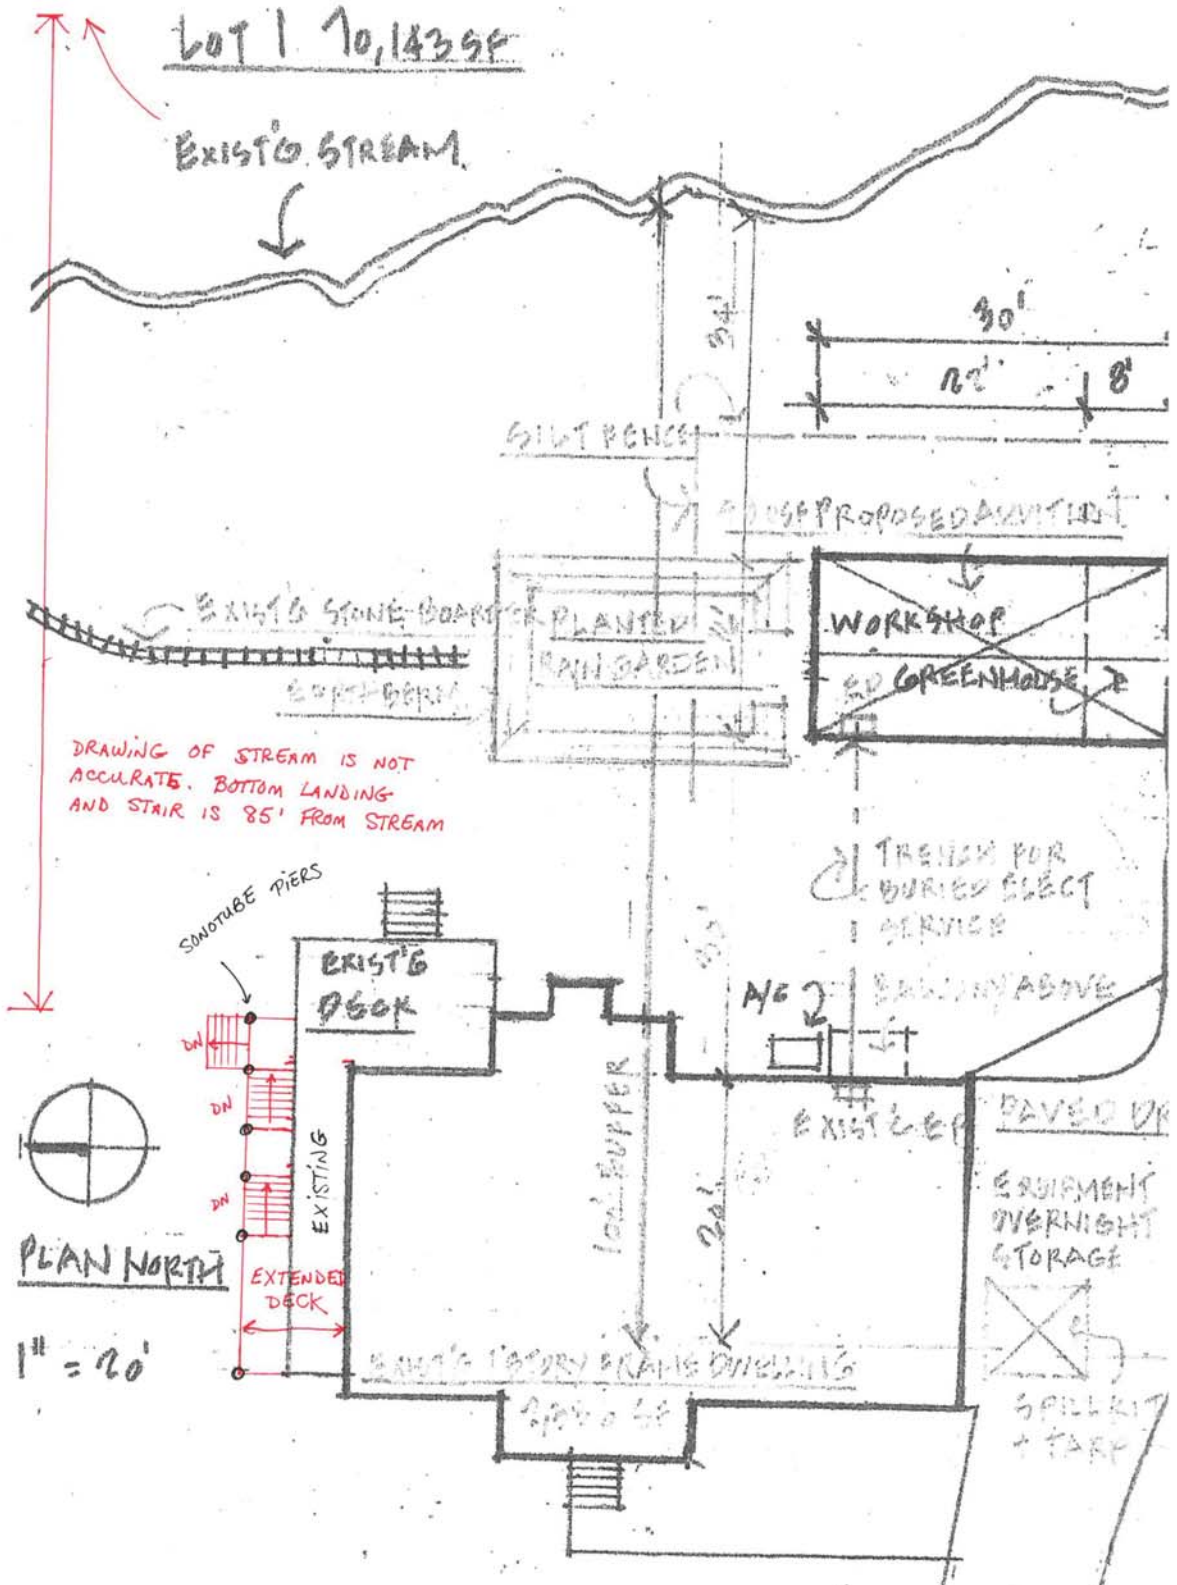 LOT 1 70,143 SF
EXIST'G STREAM.
30'
22'
8'
34'
SILT FENCE
PROPOSED ADDITION
EXIST'G STONE BOARDER
PLANTED
RAIN GARDEN
EARTH BERM
WORKSHOP
EP
GREENHOUSE
DRAWING OF STREAM IS NOT
ACCURATE. BOTTOM LANDING
AND STAIR IS 85' FROM STREAM
TRENCH FOR
BURIED ELECT
SERVICE
SONOTUBE PIERS
EXIST'G
DECK
A/C
BALCONY ABOVE
DN
DN
DN
EXISTING
100' BUFFER
20'
EXIST'G EP
PAVED DR
EQUIPMENT
OVERNIGHT
STORAGE
PLAN NORTH
EXTENDED
DECK
1" = 20'
EXIST'G 1 STORY FRAME DWELLING
SF
SPILL KIT
+ TARP